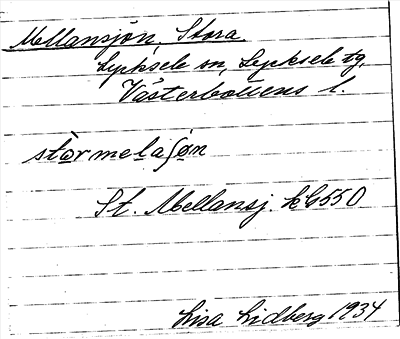 Mellansjön, Stora
Lycksele sn, Lycksele tg,
Västerbottens l.
stòrmelaʃøn
St. Mellansj. kG550
Lisa Lidberg 1934